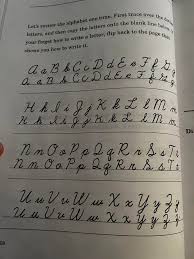 Let's master the alphabet one time. First trace over the
letters, and then copy the letters onto the blank line below. If
you forget how to write a letter, flip back to the page that
shows you how to write it.
A a B b C c D d E e F f G g
A a B b C c D d E e F f G g
H h I i J j K k L l M m
H h I i J j K k L l M m
N n O o P p Q q R r S s T t
N n O o P p Q q R r S s T t
U u V v W w X x Y y Z z
U u V v W w X x Y y Z z